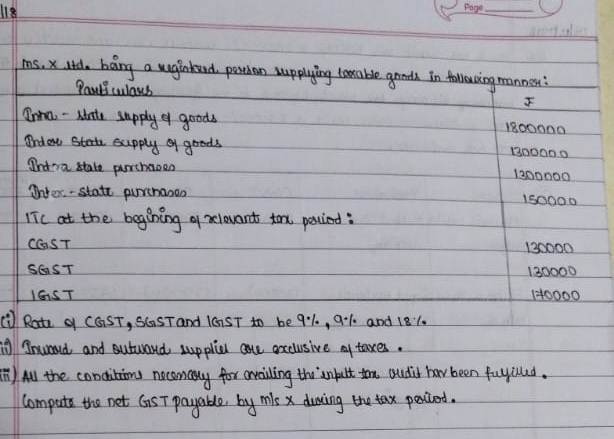 118
Page
M/s. X Ltd. being a registered person supplying taxable goods in following manner:
Particulars ₹
Intra-state supply of goods 1800000
Inter state supply of goods 1300000
Intra state purchases 1300000
Inter-state purchases 150000
ITC at the beginning of relevant tax period:
CGST 130000
SGST 130000
IGST 170000
(i) Rate of CGST, SGST and IGST to be 9%, 9% and 18%.
ii) Inward and outward supplies are exclusive of taxes.
iii) All the conditions necessary for availing the input tax credit have been fulfilled.
Compute the net GST payable by M/s X during the tax period.